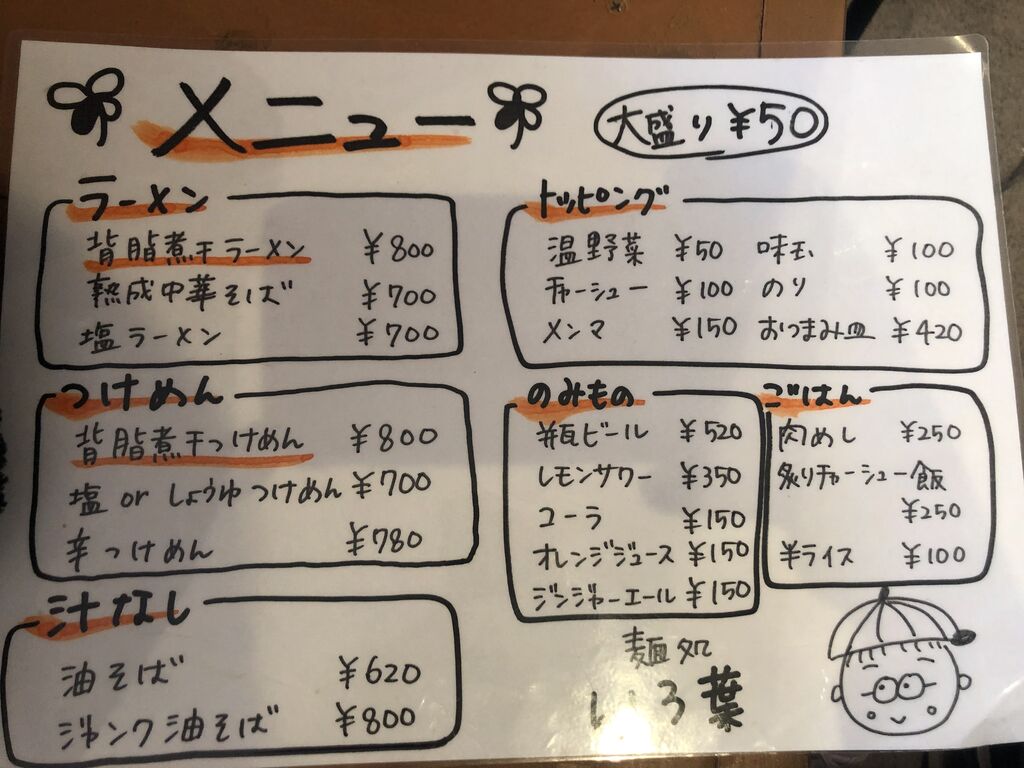 メニュー
大盛り ¥50
ラーメン
背脂煮干ラーメン ¥800
熟成中華そば ¥700
塩ラーメン ¥700
つけめん
背脂煮干つけめん ¥800
塩 or しょうゆつけめん ¥700
辛つけめん ¥780
汁なし
油そば ¥620
ジャンク油そば ¥800
トッピング
温野菜 ¥50 味玉 ¥100
チャーシュー ¥100 のり ¥100
メンマ ¥150 おつまみ皿 ¥420
のみもの
瓶ビール ¥520
レモンサワー ¥350
コーラ ¥150
オレンジジュース ¥150
ジンジャーエール ¥150
ごはん
肉めし ¥250
炙りチャーシュー飯
¥250
半ライス ¥100
麺処
いろ葉